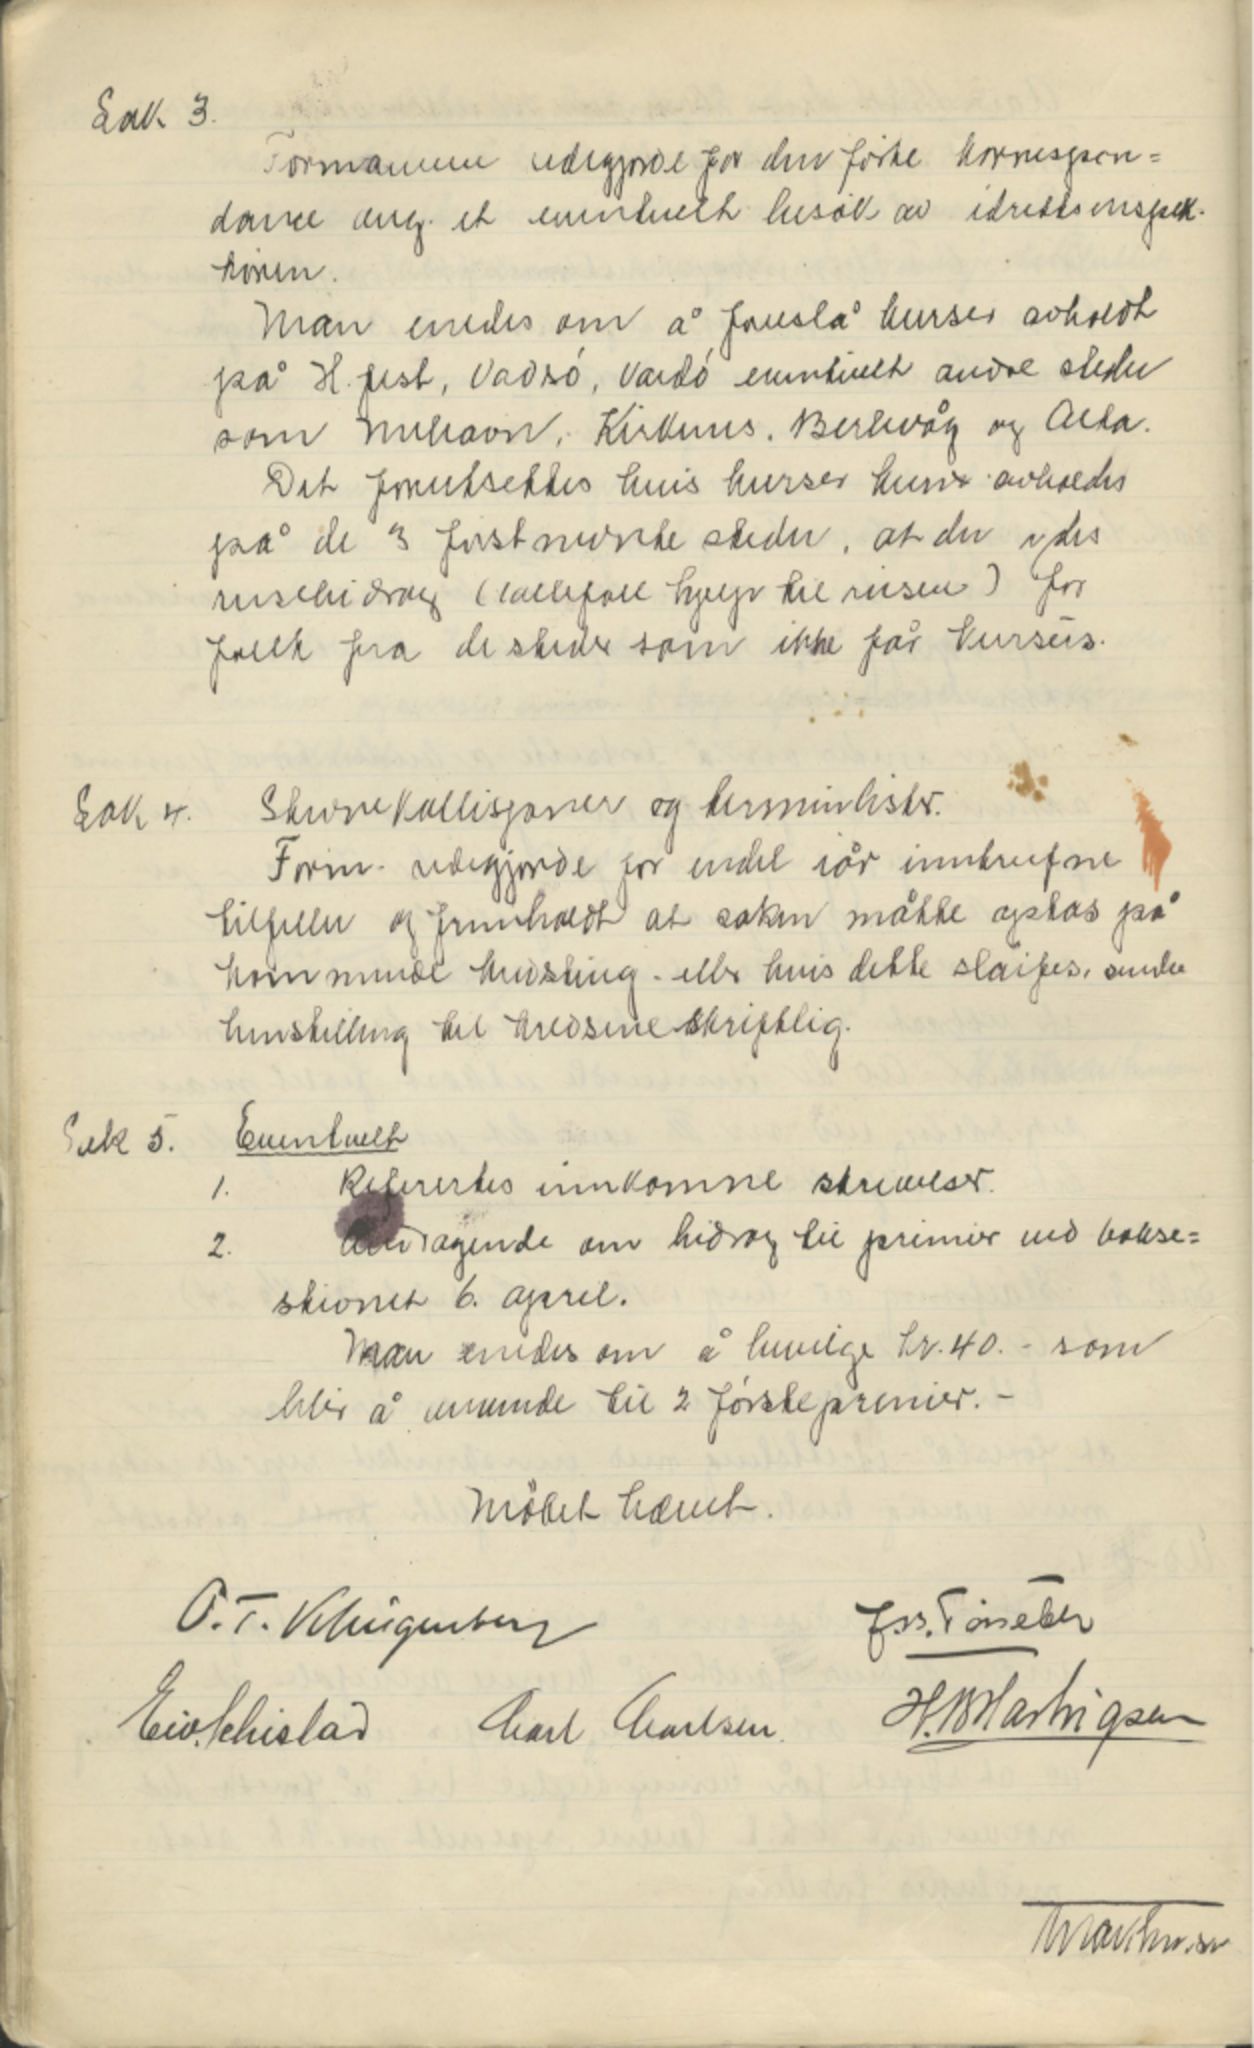 Sak 3.
Formannen utgjorde for den førte korrespon=
danse ang. et eventuelt besøk av idrettsinspek-
tøren.
Man enedes om å foreslå kurser avholdt
på H.fest, Vadsö, Vardö eventuelt andre steder
som Mehavn, Kirkenes, Berlevåg og Alta.
Det forutsettes hvis kurser kun avholdes
på de 3 først nevnte steder, at der ydes
reisebidrag (iallefall hjelp til reisen) for
folk fra de steder som ikke får kursus.
Sak 4. Stevnekollisjoner og terminlister.
Form. utgjorde for endel iår inntrufne
tilfeller og fremholdt at saken måtte optas på
kommende kredsting - eller hvis dette sløifes, sende
henstilling til kredsene skriftlig.
Sak 5. Eventuelt
1. Referertes innkomne skrivelser.
2. Andragende om bidrag til premier ved bokse=
stevnet 6. april.
Man enedes om å bevilge kr. 40.- som
blir å anvende til 2 förstepremier. -
Mötet hævet.
O. T. Klingenberg
Eiv. Schistad Carl Carlsen H. B. Hartvigsen